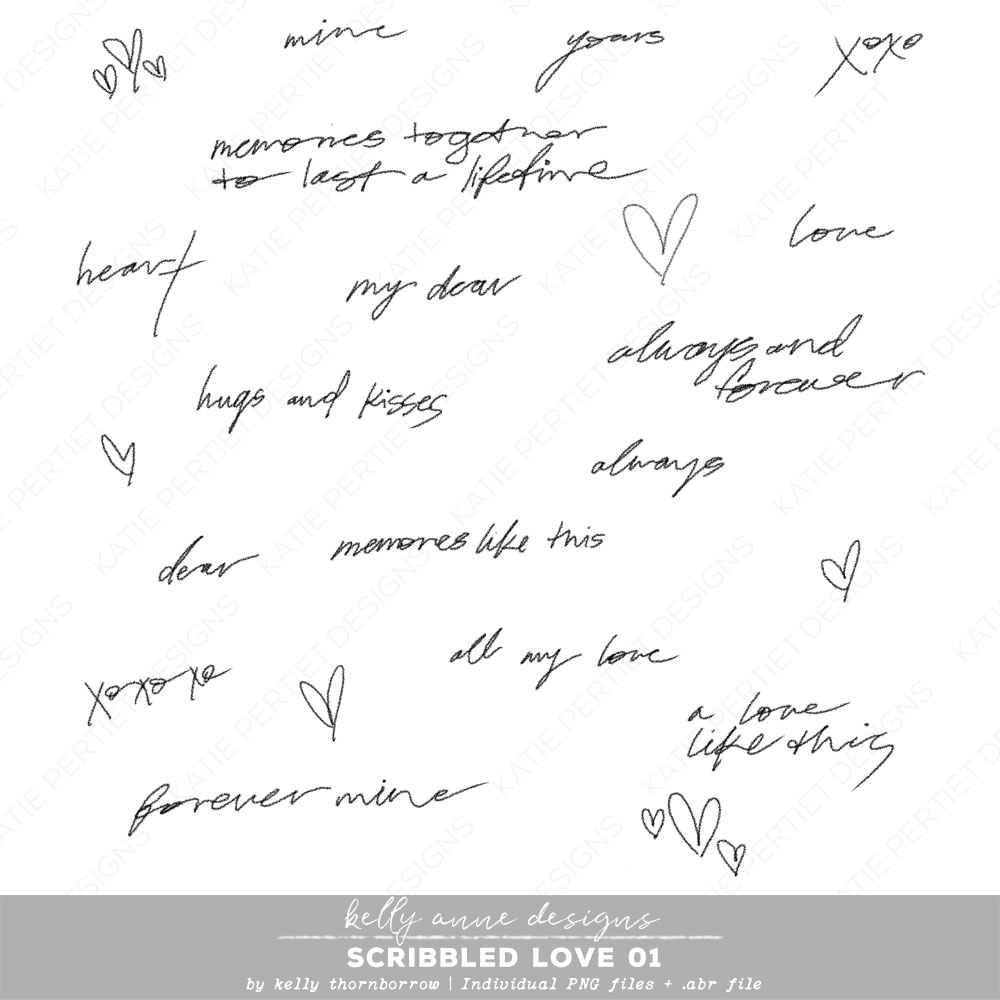 mine
yours
xoxo
memories together
to last a lifetime
love
heart
my dear
always and
forever
hugs and kisses
always
memories like this
dear
all my love
xoxoxo
a love
like this
forever mine
kelly anne designs
SCRIBBLED LOVE 01
by kelly thornborrow | Individual PNG files + .abr file
KATIE PERTIET DESIGNS